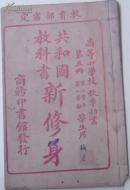 教育部審定
高等小學校 秋季始業
第五冊
學生用
共和國
教科書
新修身
商務印書館發行